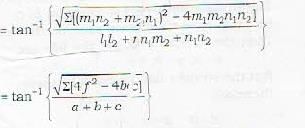 = tan⁻¹ { √Σ[(m₁n₂ + m₂n₁)² − 4m₁m₂n₁n₂] / l₁l₂ + m₁m₂ + n₁n₂ }
= tan⁻¹ { √Σ[4f² − 4bc] / a + b + c }